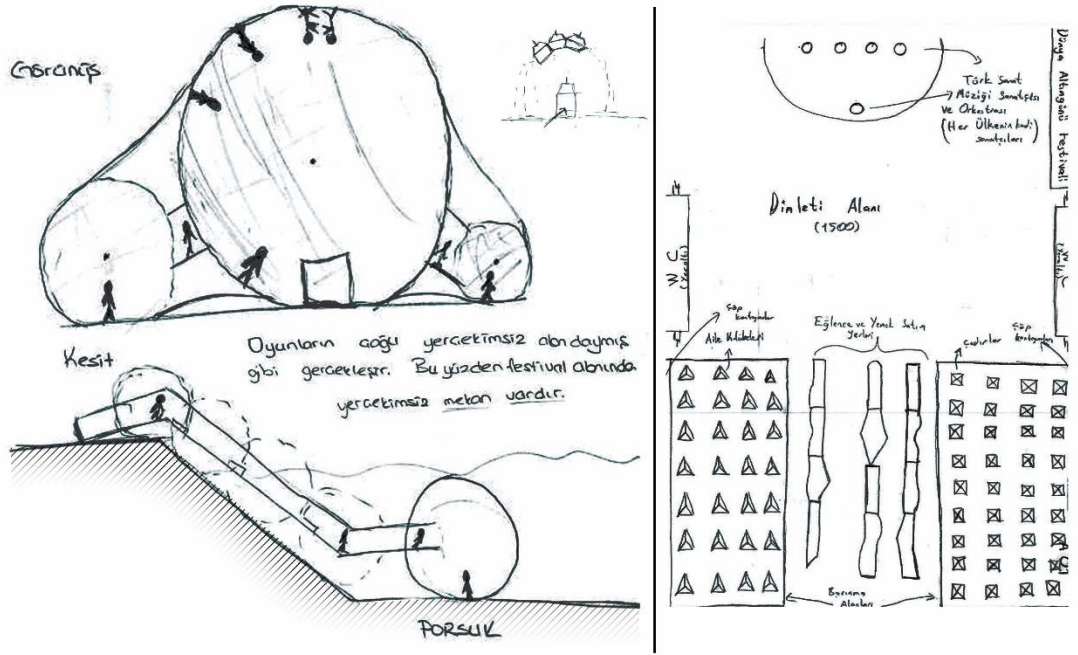 Görünüş
Oyunların çoğu yerçekimsiz alandaymış
gibi gerçekleşir. Bu yüzden festival alanında
yerçekimsiz mekan vardır.
Kesit
PORSUK
Türk Sanat
Müziği Sanatçısı
ve Orkestrası
(Her Ülkenin kendi
sanatçıları)
Dünya Altıngünü Festivali
Dinleti Alanı
(1500)
WC
(Yeraltı)
(Yeraltı)
Çöp
konteynır
Aile Kulübeleri
Eğlence ve Yemek Satım
Yerleri
Çadırlar
Çöp
konteynırları
Barınma
Alanları